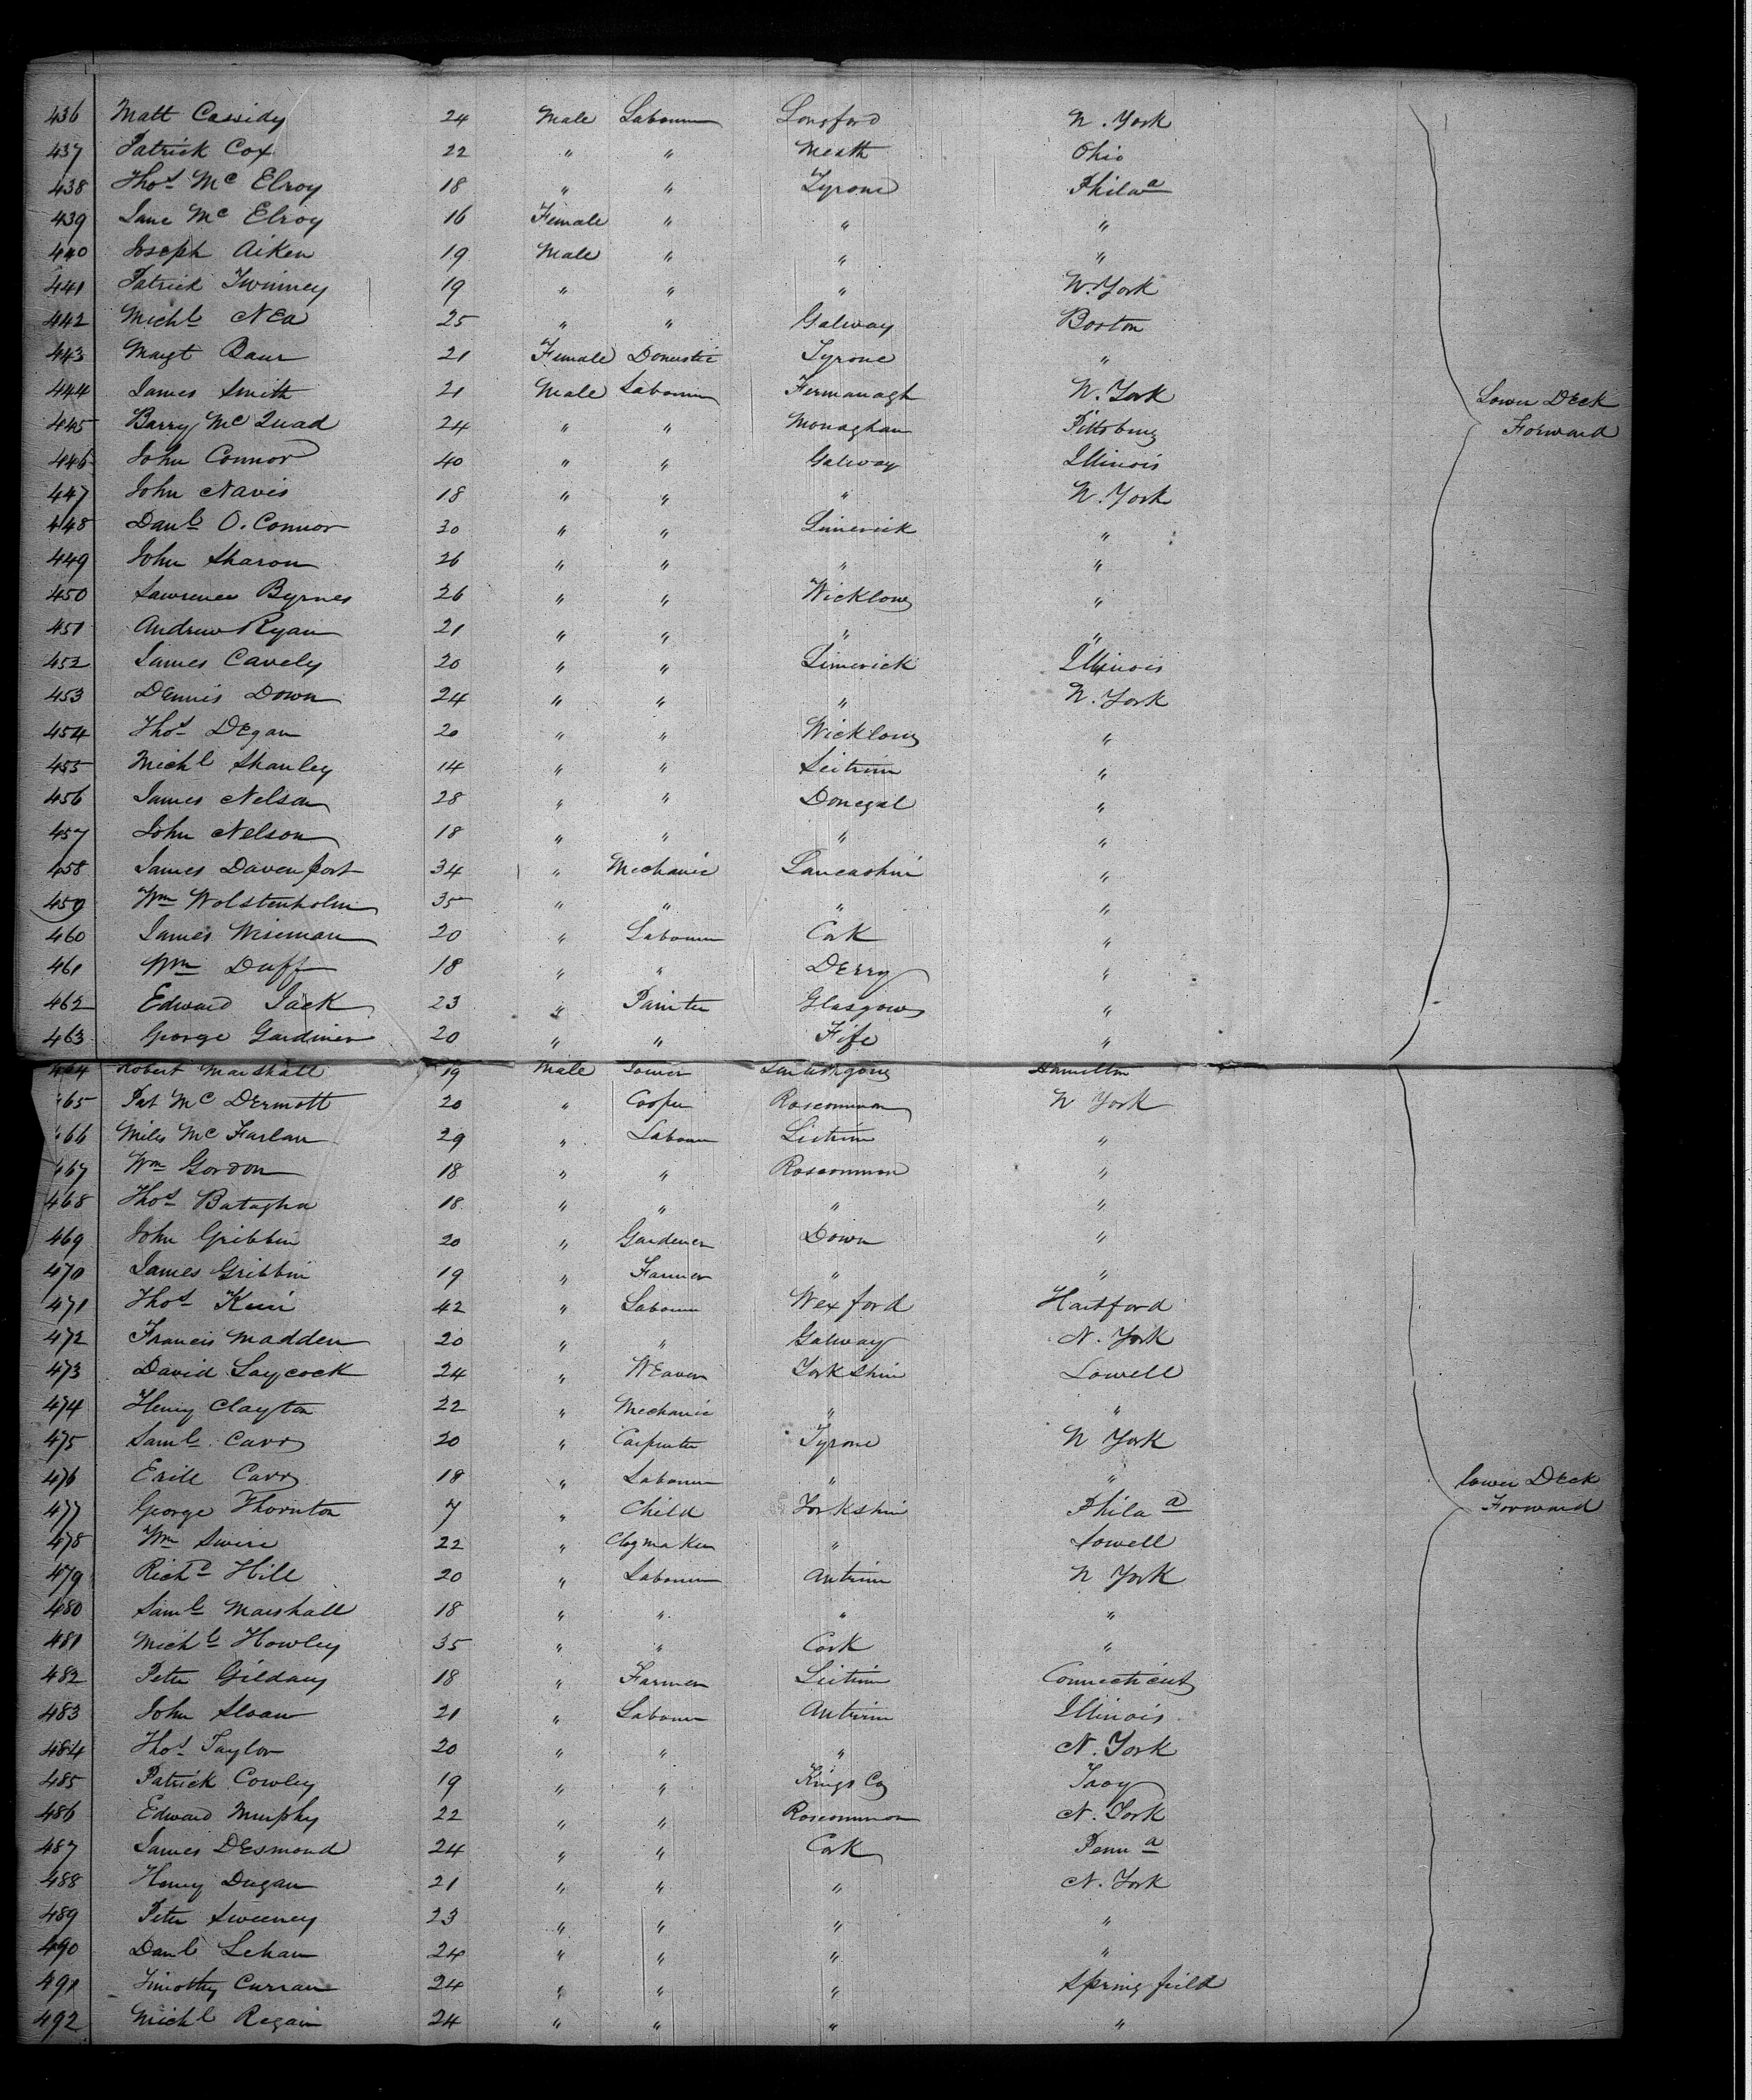 436 Matt Cassidy 24 Male Labourer Longford N. York
437 Patrick Cox 22 " " Meath Ohio
438 Thos Mc Elroy 18 " " Tyrone Phila a
439 Jane Mc Elroy 16 Female " " "
440 Joseph Aiken 19 Male " " "
441 Patrick Twinney 19 " " " N. York
442 Michl Nea 25 " " Galway Boston
443 Margt 21 Female Domestic Tyrone "
444 James Smith 21 Male Labourer Fermanagh N. York
Lower Deck
445 Barry Mc Quad 24 " " Monaghan Pittsburg
Forward
446 John Connor 40 " " Galway Illinois
447 John Navis 18 " " " N. York
448 Danl O. Connor 30 " " Limerick "
449 John Sharon 26 " " " "
450 Lawrence Byrnes 26 " " Wicklow "
451 Andrew Ryan 21 " " " "
452 James Cavely 20 " " Limerick Illinois
453 Dennis Down 24 " " " N. York
454 Thos Degan 20 " " Wicklow "
455 Michl Shanley 14 " " Leitrim "
456 James Nelson 28 " " Donegal "
457 John Nelson 18 " " " "
458 James Davenport 34 " Mechanic Lancashire "
459 Wm Wolstenholm 35 " " " "
460 James Wiseman 20 " Labourer Cork "
461 Wm Duff 18 " " Derry "
462 Edward Jack 23 " Painter Glasgow "
463 George Gardiner 20 " " Fife "
464 Robert Marshall 19 Male Hamilton
465 Pat Mc Dermott 20 " Cooper Roscommon N York
466 Miles Mc Farlan 29 " Labourer Leitrim "
467 Wm Gordon 18 " " Roscommon "
468 Thos Batagha 18 " " " "
469 John Gribbin 20 " Gardener Down "
470 James Gribbin 19 " Farmer " "
471 Thos 42 " Labourer Wexford Hartford
472 Francis Madden 20 " " Galway N. York
473 David Laycock 24 " Weaver Yorkshire Lowell
474 Henry Clayton 22 " Mechanic " "
475 Saml Carr 20 " Carpenter Tyrone N York
476 Carr 18 " Labourer " "
Lower Deck
477 George Thornton 7 " Child Yorkshire Phila a
Forward
478 Wm Swire 22 " Clogmaker " Lowell
479 Richd Hill 20 " Labourer Antrim N York
480 Saml Marshall 18 " " " "
481 Michl Howley 35 " " Cork "
482 Peter Gildany 18 " Farmer Leitrim Connecticut
483 John Sloan 21 " Labourer Antrim Illinois
484 Thos Taylor 20 " " " N. York
485 Patrick Cowley 19 " " Kings Co Troy
486 Edward Murphy 22 " " Roscommon N. York
487 James Desmond 24 " " Cork Penn a
488 Henry Dugan 21 " " " N. York
489 Peter Sweeney 23 " " " "
490 Danl Lehan 24 " " " "
491 Timothy Curran 24 " " " Springfield
492 Michl Regain 24 " " " "